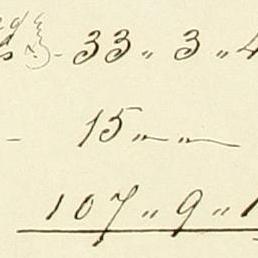 33 〃 3 〃 4
– 15 〃 – 〃 –
107 〃 9 〃 1